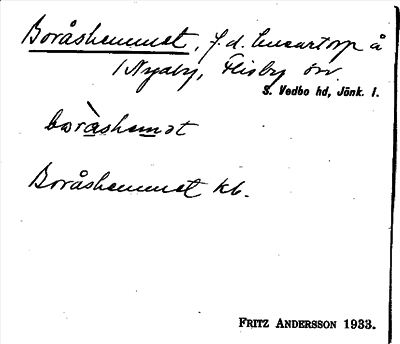 Boråshemmet, f.d. lucartorp å
1 Nyaby, Flisby sn.
S. Vedbo hd, Jönk. l.
boràshemət
Boråshemmet kb.
FRITZ ANDERSSON 1933.